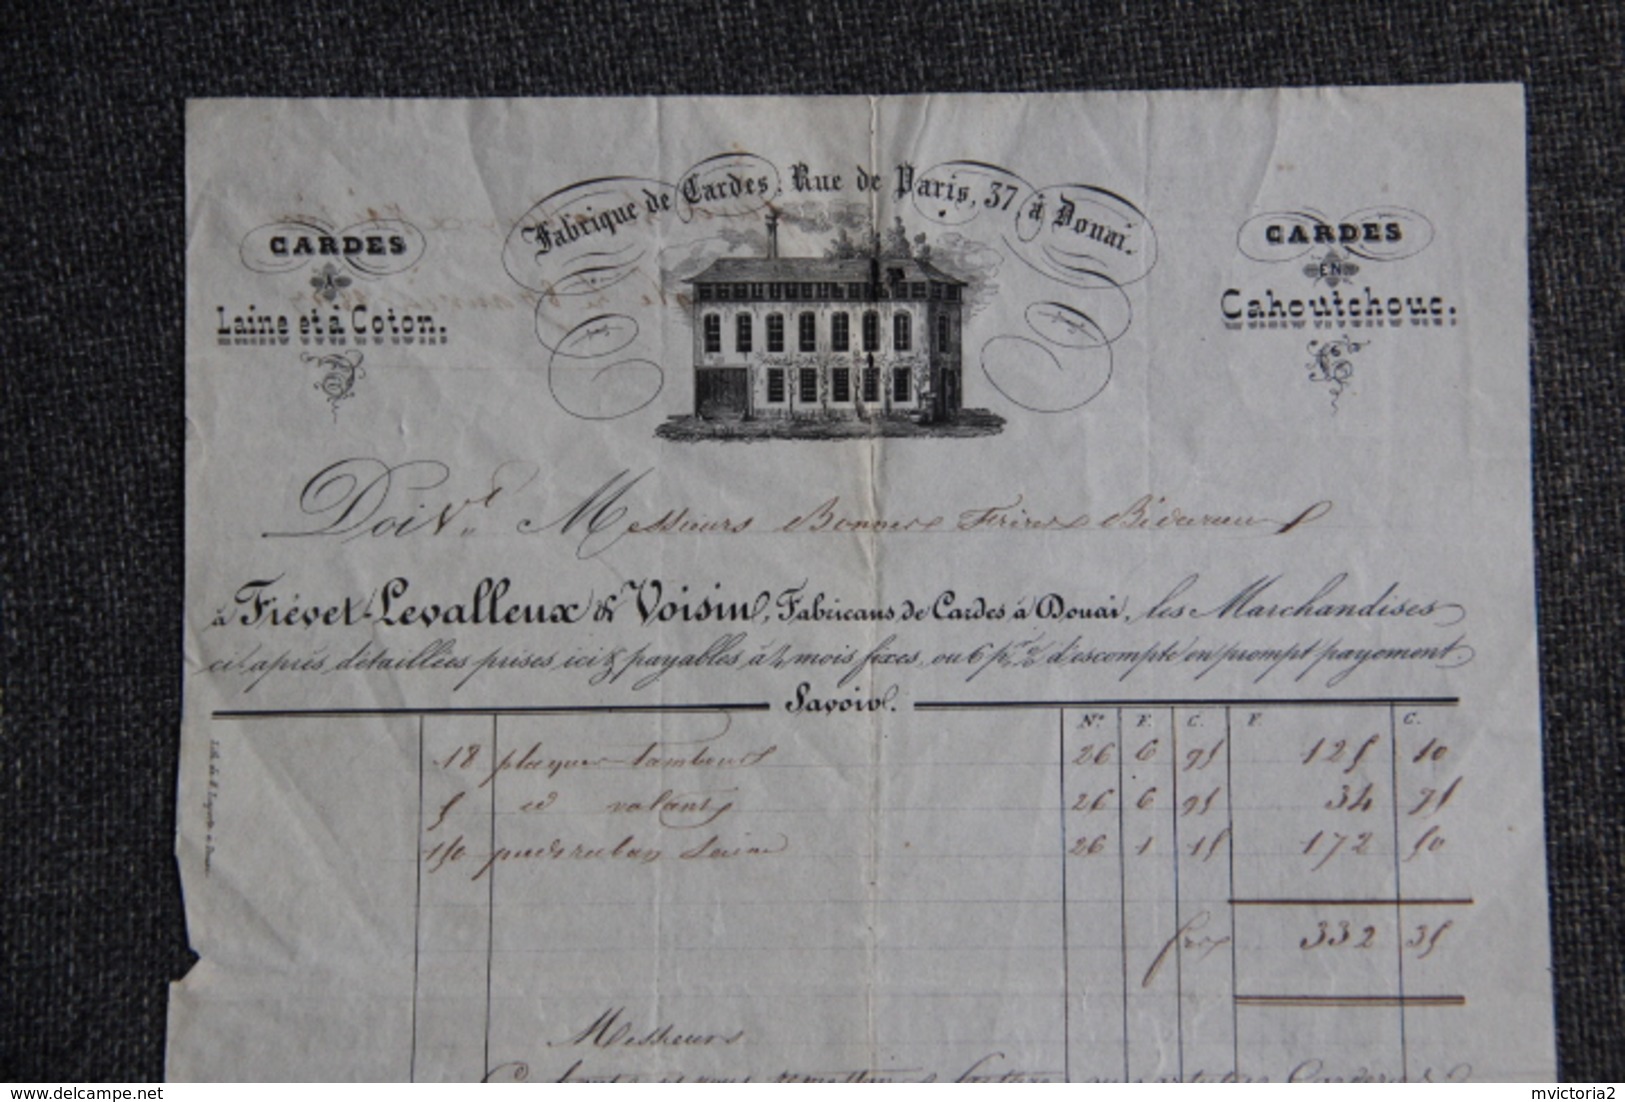 Fabrique de Cardes, Rue de Paris, 37, à Douai.
CARDES
A
Laine et à Coton.
CARDES
EN
Cahoutchouc.
Doiv.t Messieurs Bonnes Frères
à Fiévet-Levalleux & Voisin, Fabricans de Cardes à Douai, les Marchandises
ci après détaillées prises ici & payables à 4 mois fixes, ou 6 p.r % d'escompte en prompt payement.
Savoir.
N.º F. C. F. C.
18 plaques tambours 26 6 95 125 10
5 id volants 26 6 95 34 75
150 pieds ruban 26 1 15 172 50
frcs 332 35
Messieurs
delcampe.net
mvictoria2